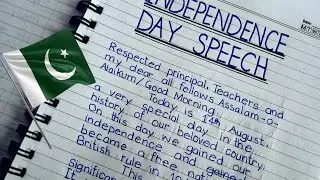 INDEPENDENCE
DAY SPEECH
Respected principal, Teachers and
my dear all fellows Assalam-o-
Alaikum/Good Morning.
Today is 14th August,
a very special day in the
history of our beloved country.
On this day we gained our
independence and
became a free
British rule in
This